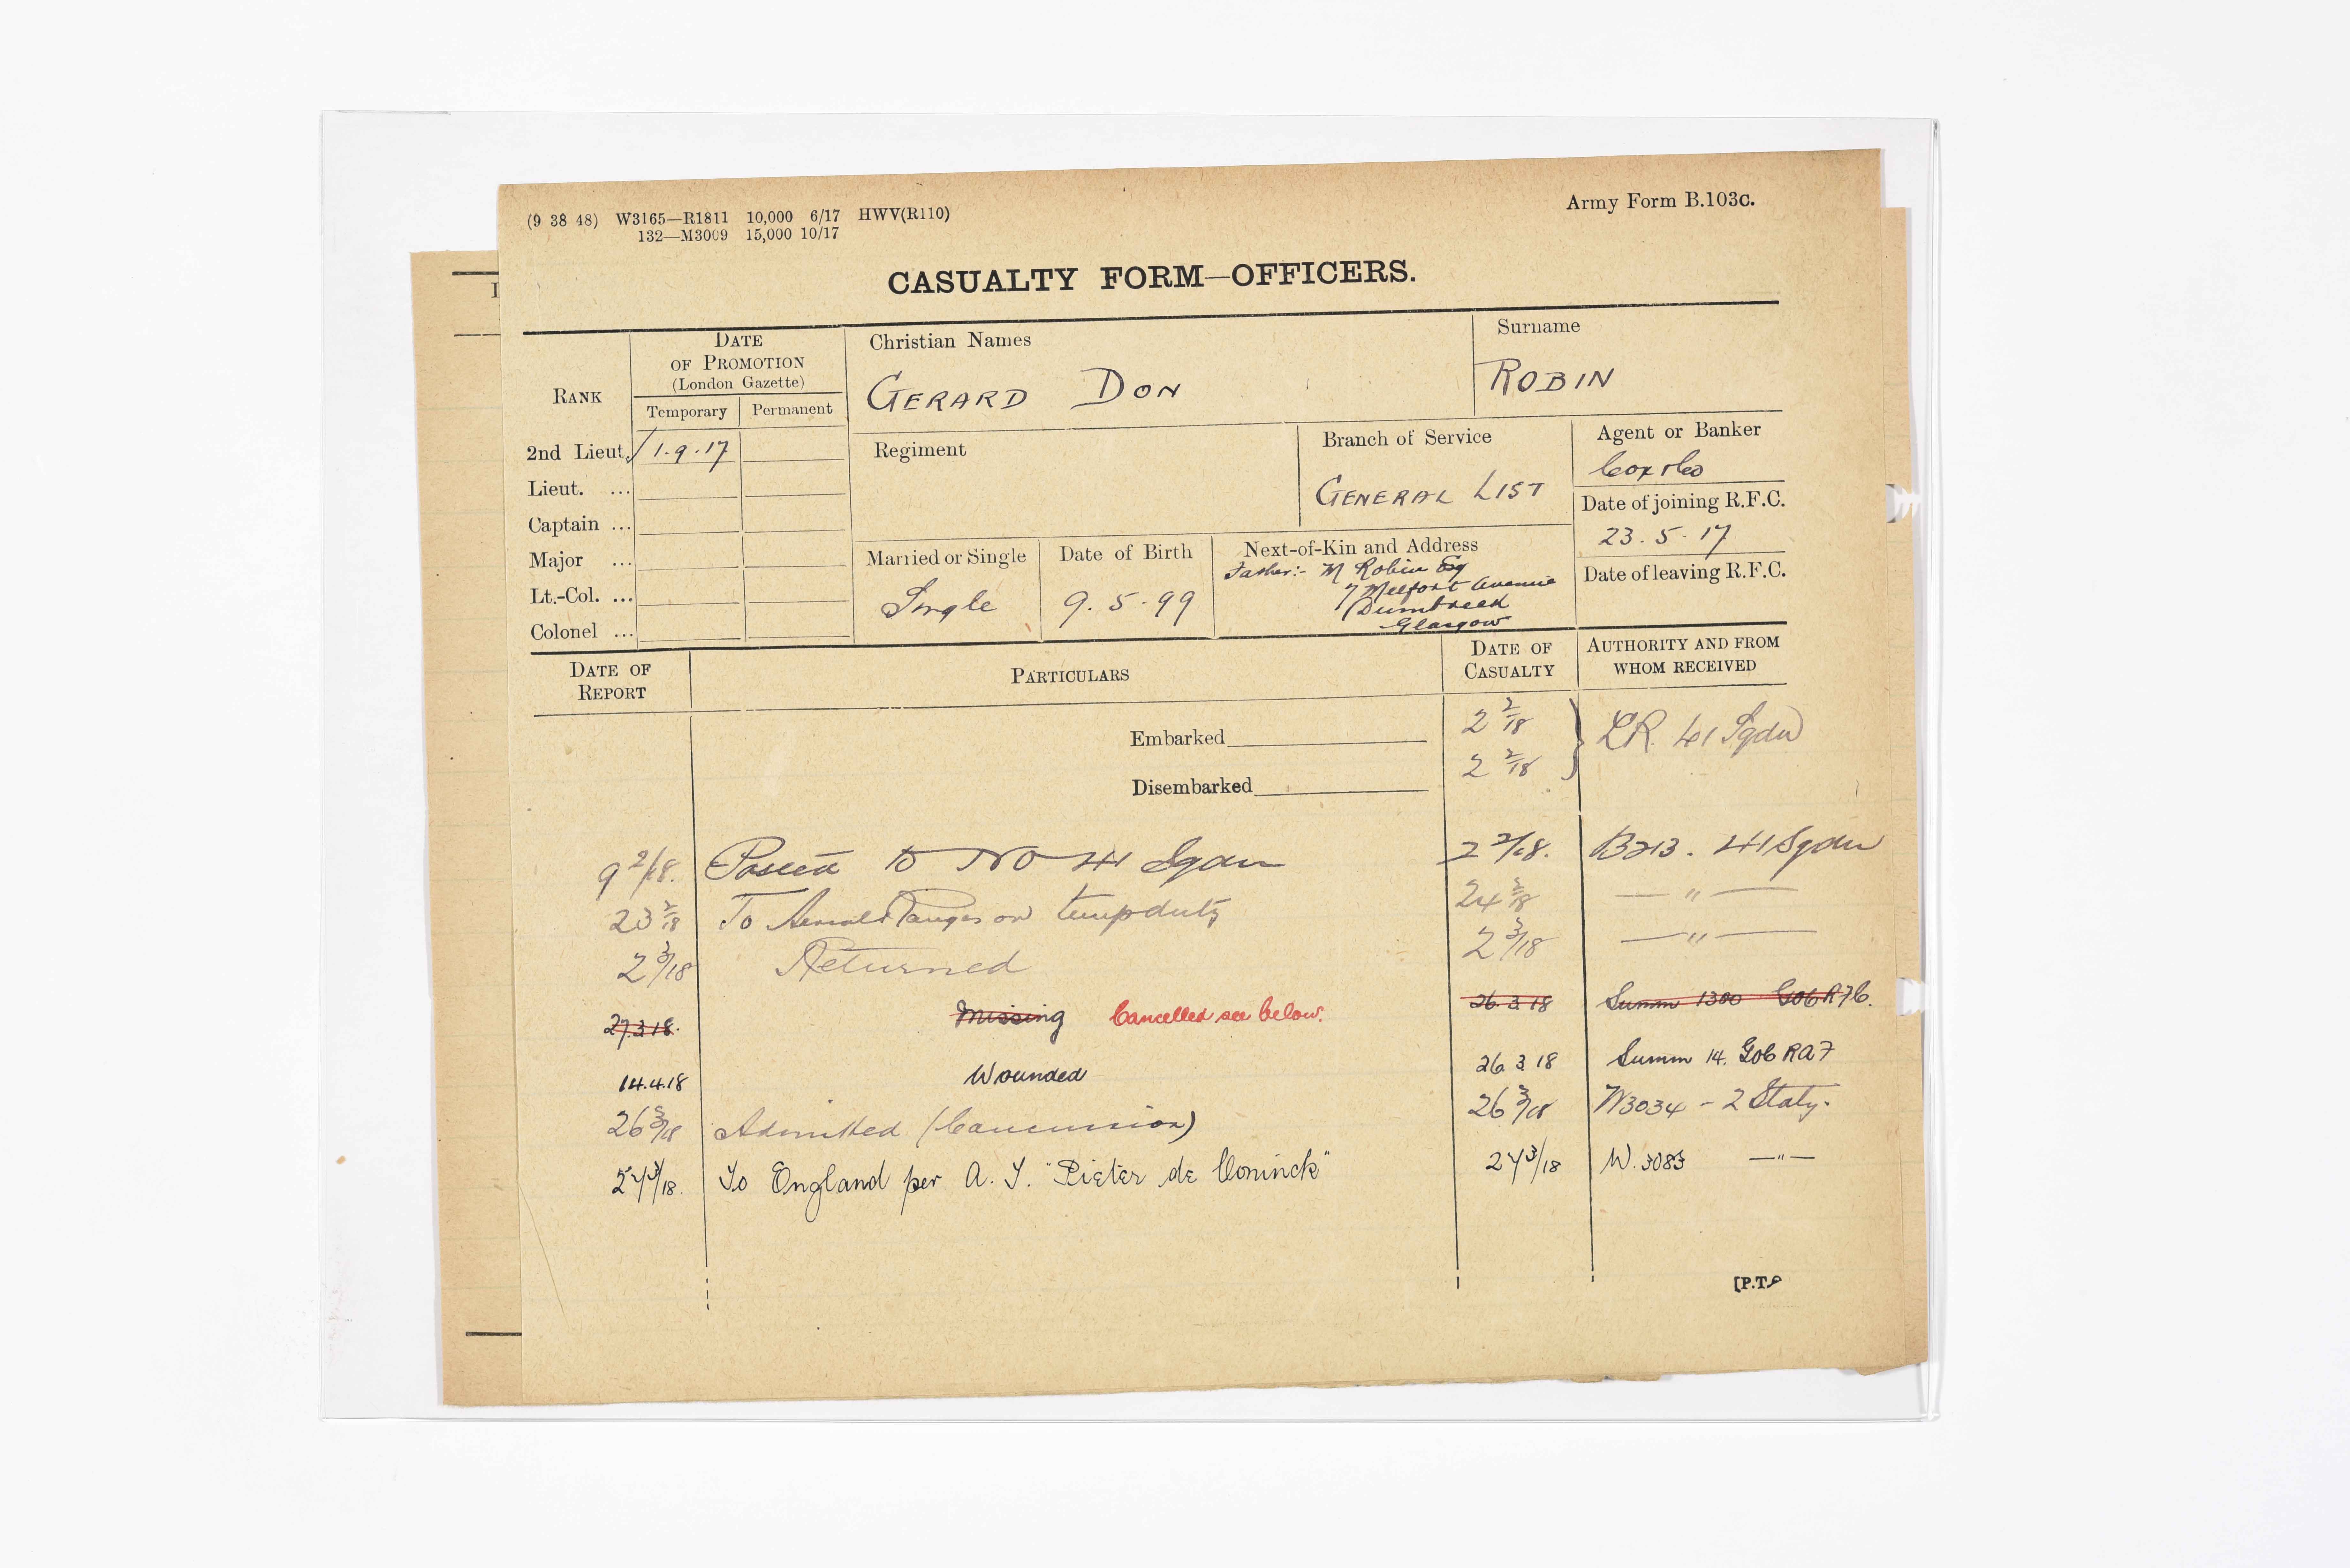 (9 38 48) W3165—R1811 10,000 6/17 HWV(R110)
132—M3009 15,000 10/17
Army Form B.103c.
CASUALTY FORM—OFFICERS.
RANK
DATE OF PROMOTION (London Gazette)
Temporary Permanent
2nd Lieut. 1.9.17
Lieut. ...
Captain ...
Major ...
Lt.-Col. ...
Colonel ...
Christian Names
GERARD DON
Surname
ROBIN
Regiment
Branch of Service
GENERAL LIST
Agent or Banker
Cox & Co
Date of joining R.F.C.
23.5.17
Date of leaving R.F.C.
Married or Single
Single
Date of Birth
9.5.99
Next-of-Kin and Address
Father:- M Robin Esq
7 Melfort Avenue
Dumbreck
Glasgow
DATE OF REPORT
PARTICULARS
DATE OF CASUALTY
AUTHORITY AND FROM WHOM RECEIVED
Embarked 2 2/18
Disembarked 2 2/18
LR. 41 Sqdn
9 2/18. Posted to No 41 Sqdn 2 2/18. B213. 41 Sqdn
23 2/18 To Aerial Ranges on temp duty 24 2/18 — " —
2 3/18 Returned 2 3/18 — " —
27.3.18. Missing Cancelled see below. 26.3.18 Summ 1300 GOC RFC.
14.4.18 Wounded 26 3 18 Summ 14. GOC RAF
26 3/18 Admitted (Concussion) 26 3/18 W3034 - 2 Staty.
3/18. To England per A.T. "Pieter de Coninck" 3/18 W.3083 — " —
[P.T.O